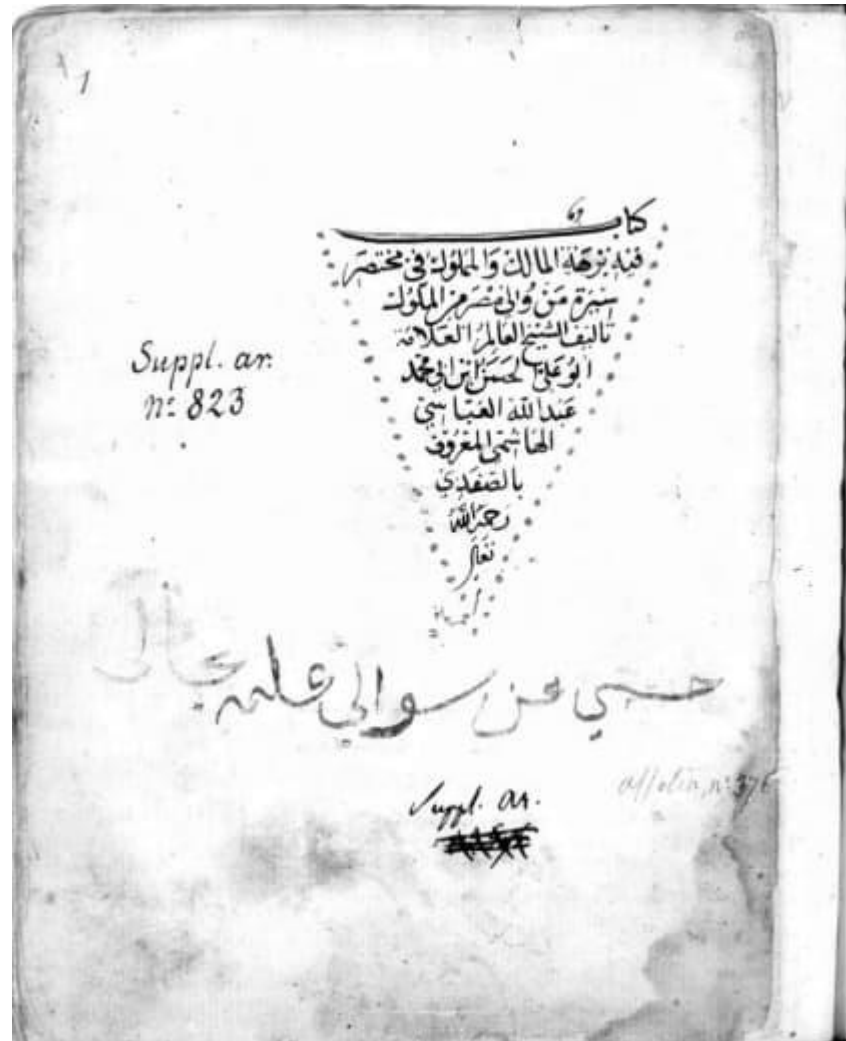 1
كتاب
فيه نزهة المالك والمملوك في مختصر
سيرة من ولي مصر من الملوك
تاليف الشيخ العالم العلامة
ابو علي الحسن ابن ابي محمد
عبد الله العباسي
الهاشمي المعروف
بالصفدي
رحمه الله
تعالى
امين
Suppl. ar.
nº 823
حسبي من سوالي علمه بحالي
Suppl. ar.
nº 376